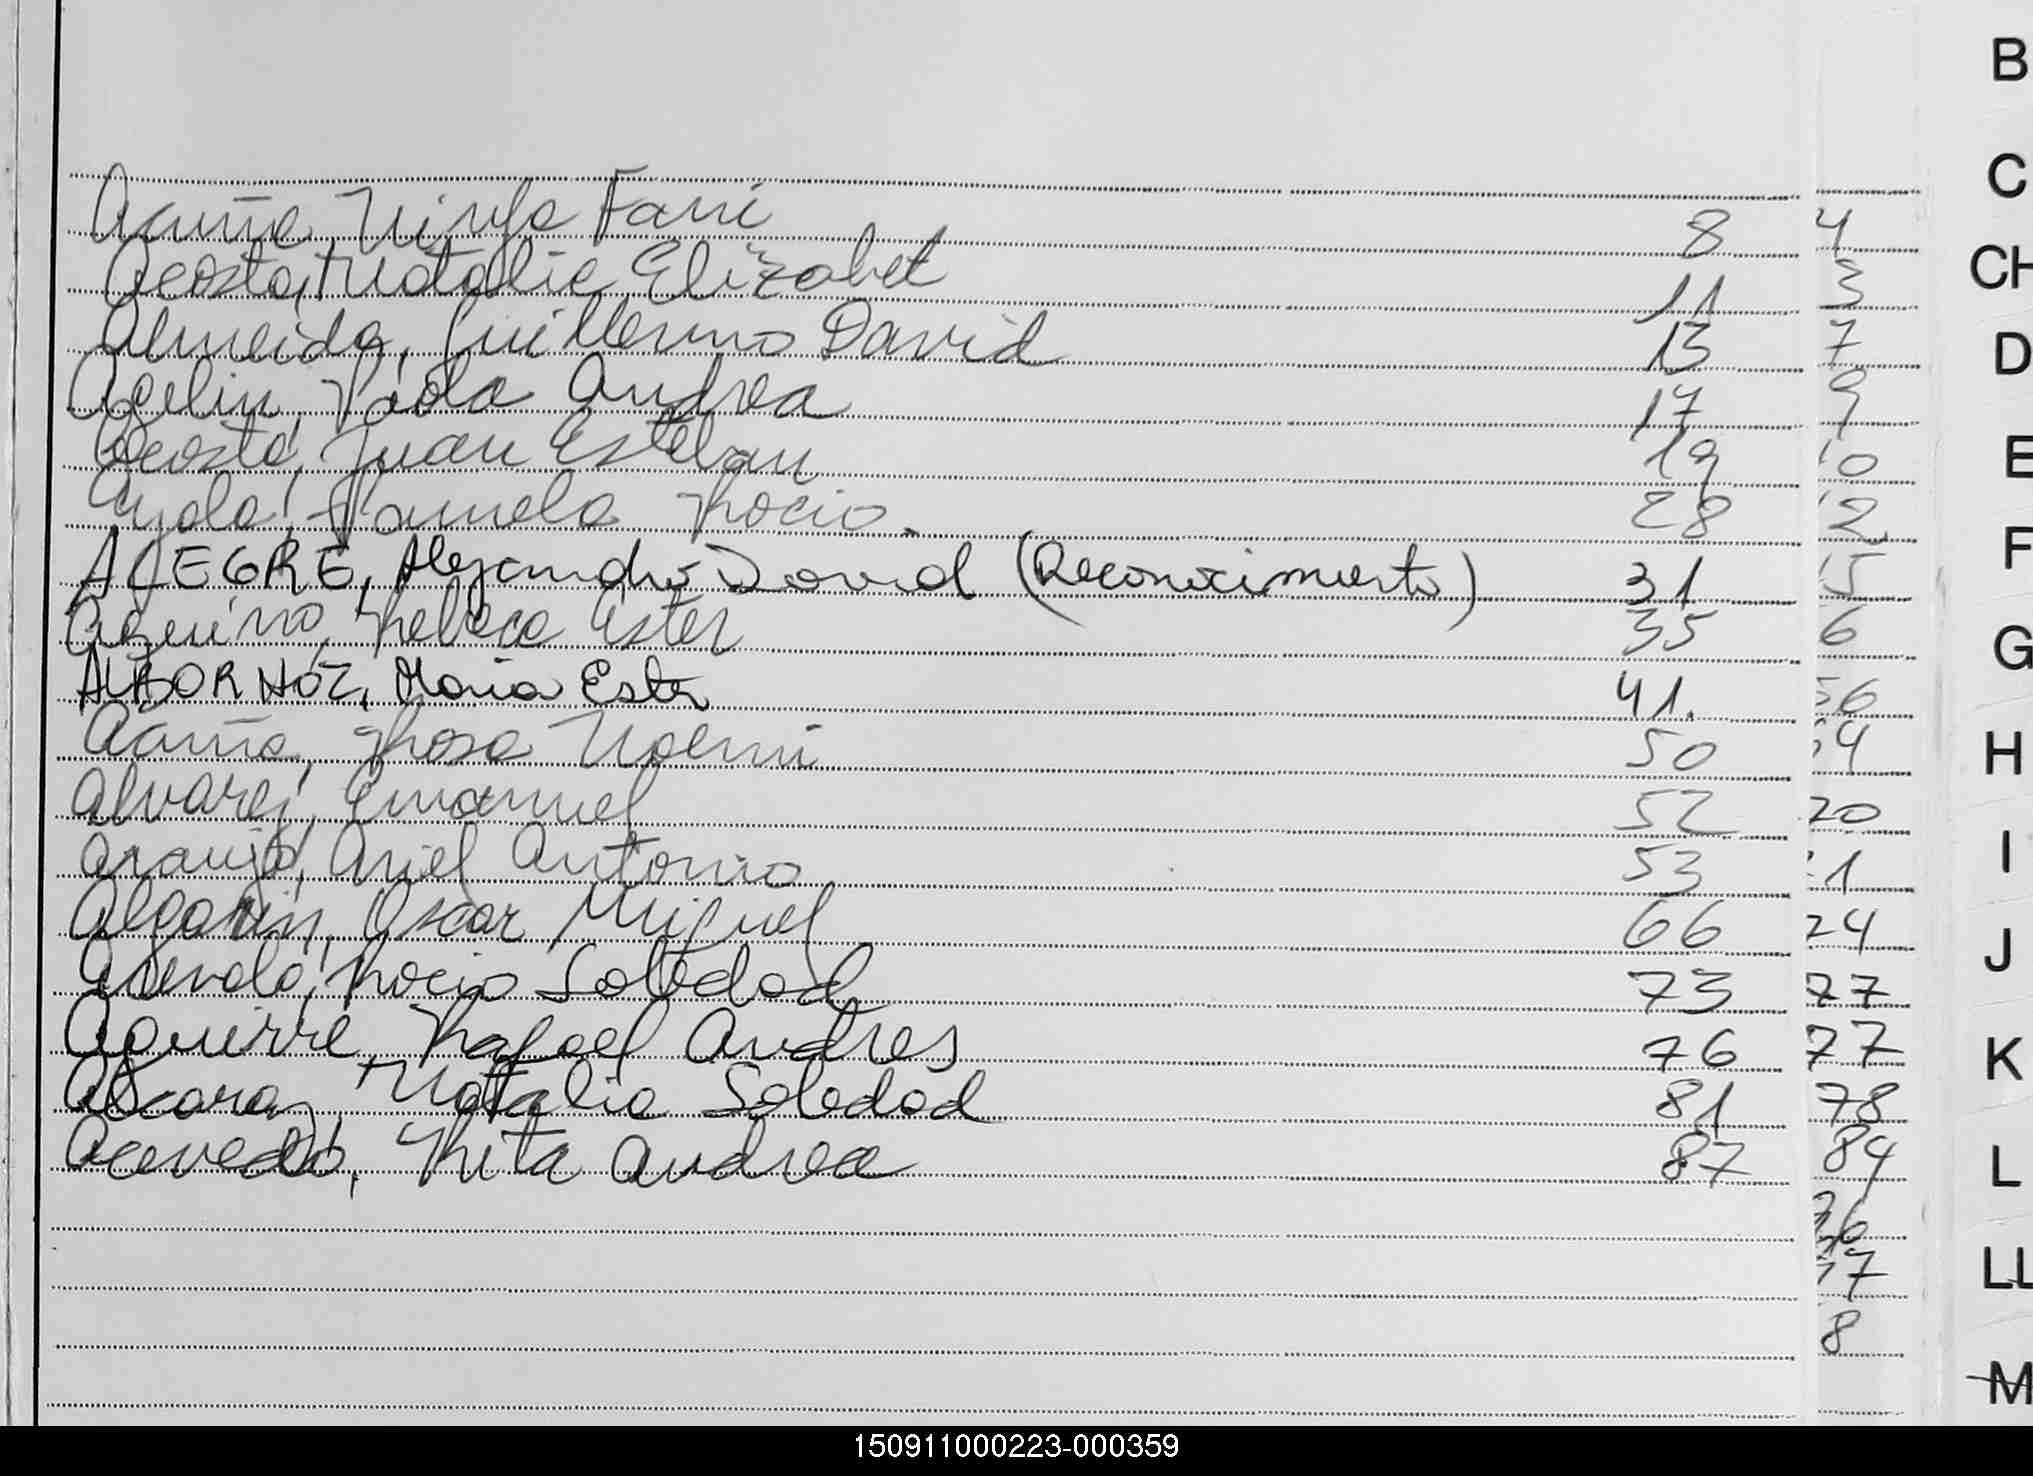 Acuña, Ninfa Fani 8
Acosta, Natalia Elizabet 11
Almeida, Guillermo David 13
Paola Andrea 17
Acosta, Juan Esteban 19
Ayala, Pamela Rocio 28
ALEGRE, Alejandro David (Reconocimiento) 31
Aquino, Rebeca Ester 35
ALBORNOZ, Maria Ester 41.
Acuña, Rosa Noemi 50
Alvarez, Emanuel 52
Araujo, Ariel Antonio 53
Alegarin, Oscar Miguel 66
Rocio Soledad 73
Aguirre, Rafael Andres 76
Alscaraz, Natalia Soledad 81
Acevedo, Rita Andrea 87
4
3
7
9
10
12
15
6
56
54
20
1
24
77
77
78
84
76
77
8
B
C
CH
D
E
F
G
H
I
J
K
L
LL
M
150911000223-000359